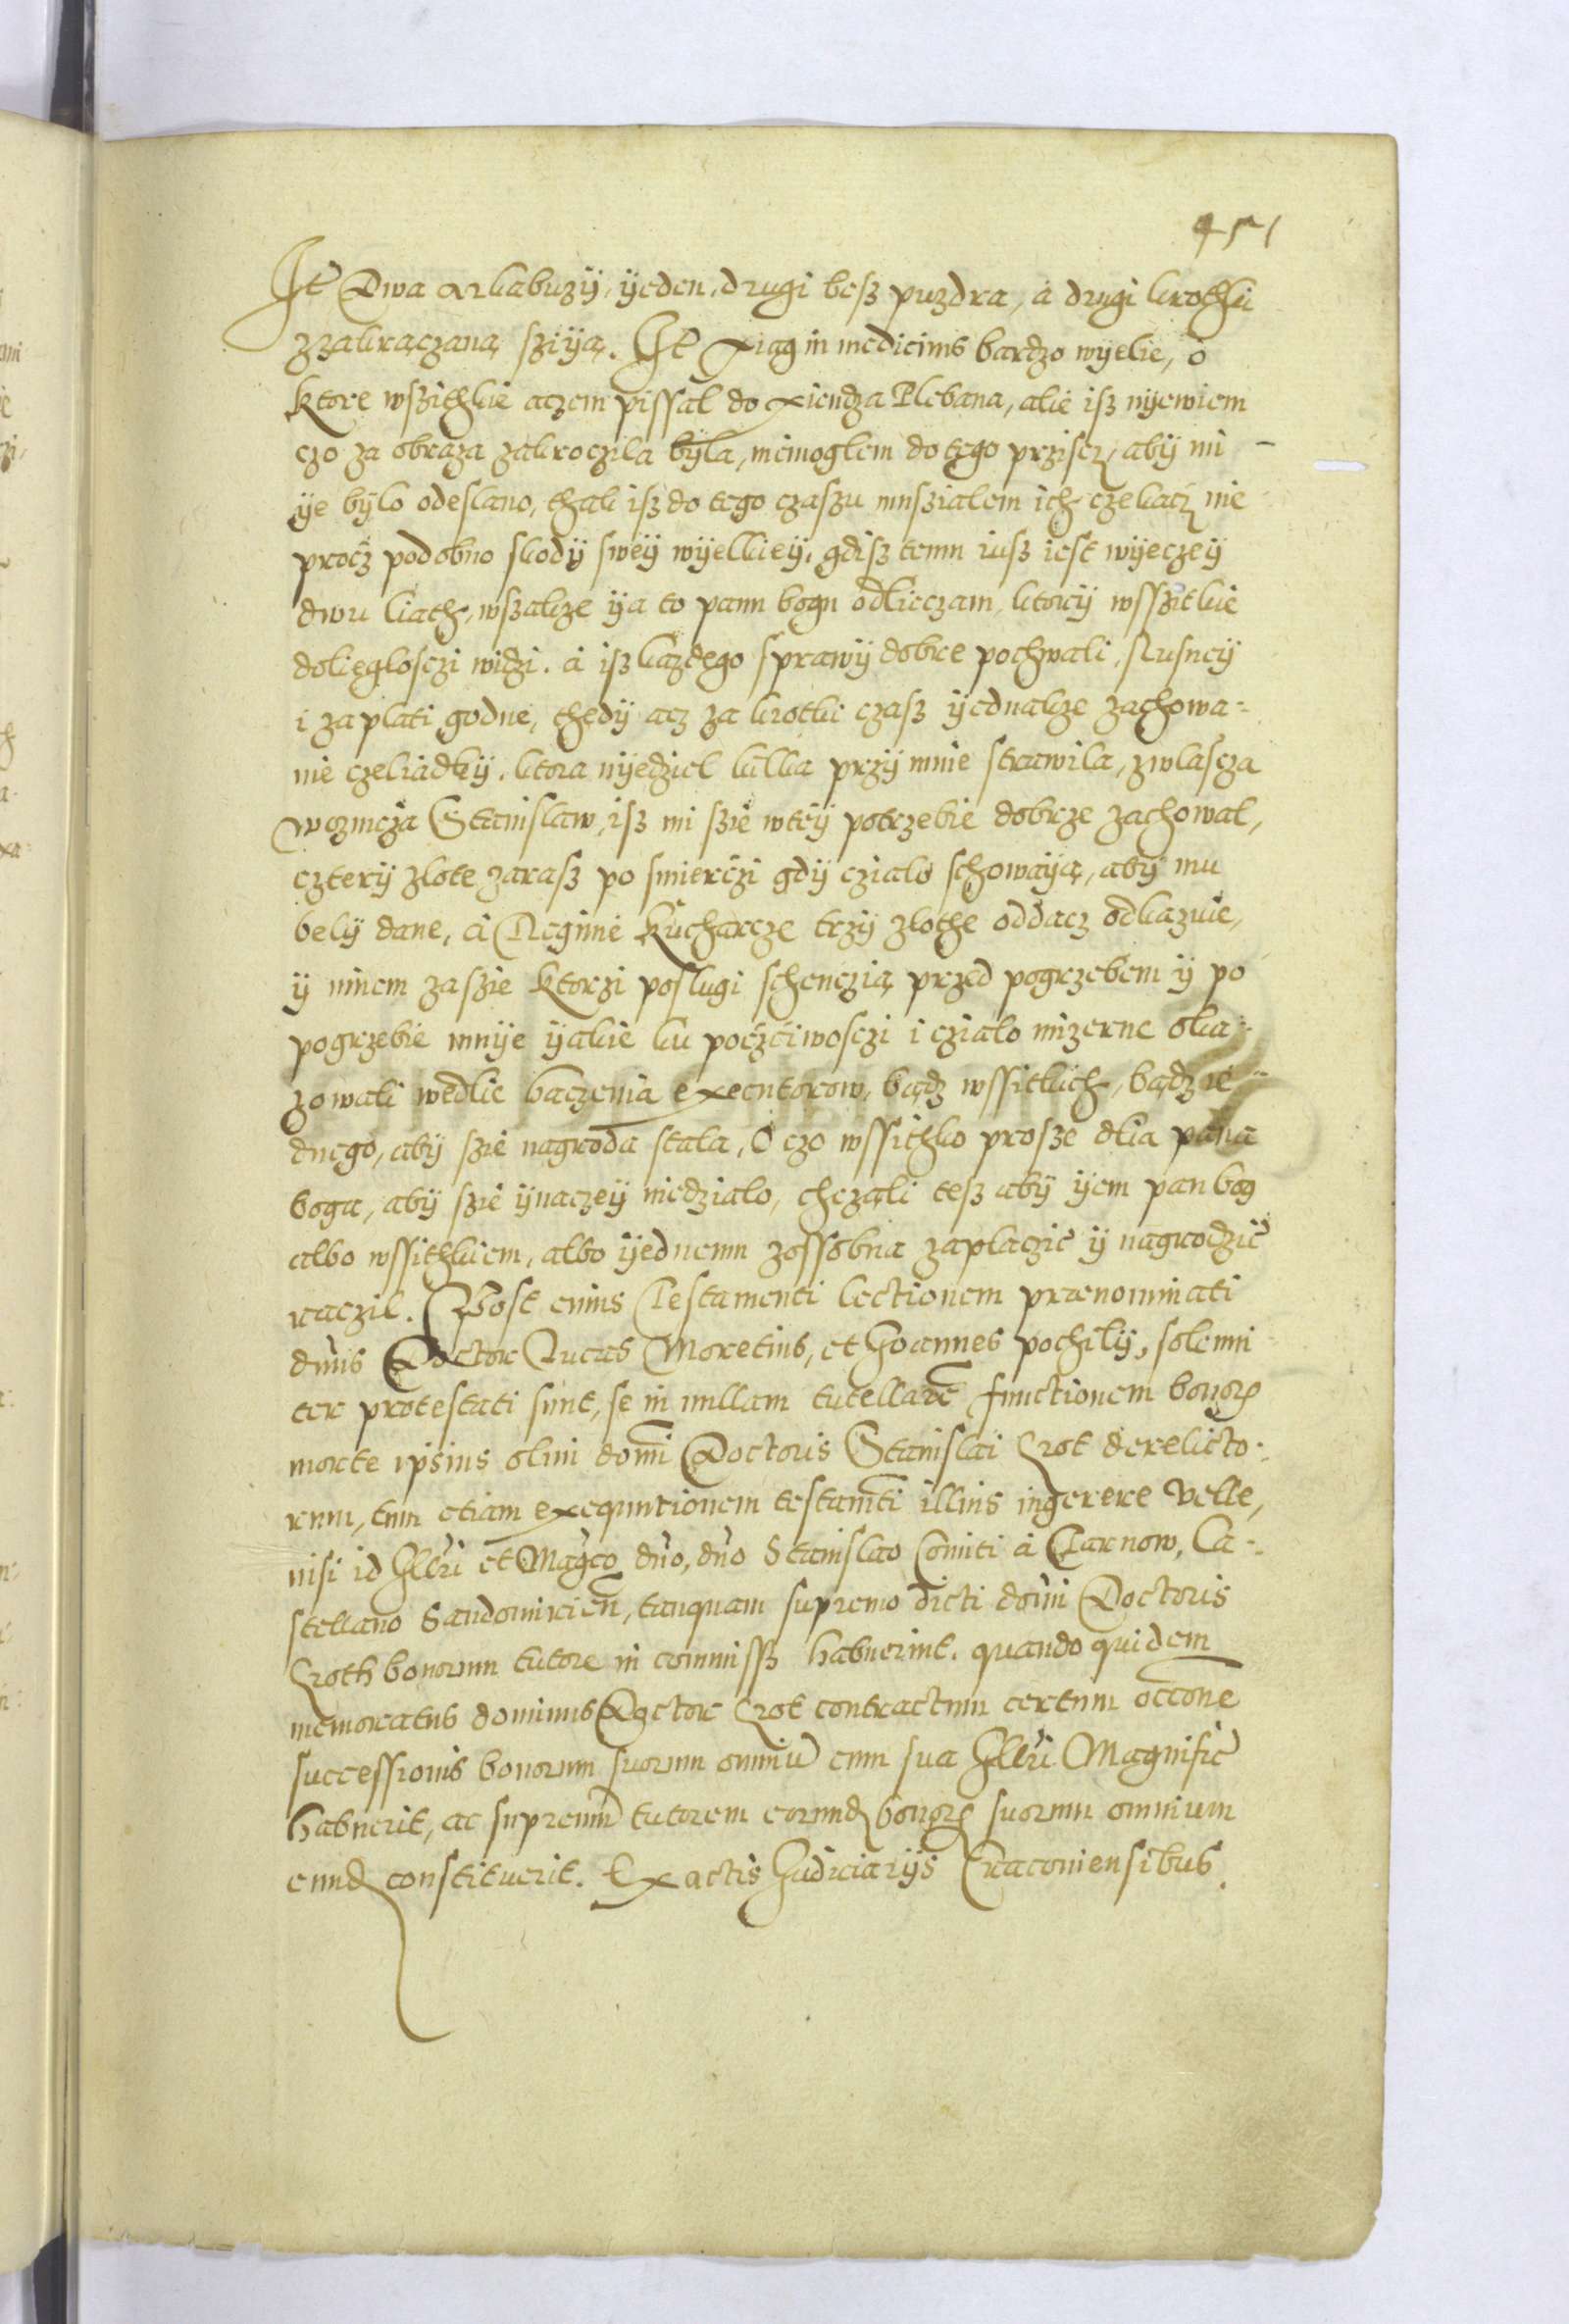 451
It Dwa arkabuzÿ, ÿeden, drugi besz puzdra, a drugi krothki
zzakrączaną sziÿą. It xiąg in medicinis bardzo wÿelie, o
ktore wszithkie aczem pissal do xiendza Plebana, alie isz nÿewiem
czo za obraza zakroczila bÿla, niemoglem do tego prziscz, abÿ mi
ÿe bÿlo odeslano, thak isz do tego czaszu muszialem ich czekacz nie
procz podobno skodÿ sweÿ wÿelkieÿ, gdisz temu iusz iest wÿeczeÿ
dwu liath, wszakze ÿa to panu bogu odlieczam, ktorÿ wsszitkie
doliegloscZi widzi. a isz kazdego sprawÿ dobre pochwali, slusneÿ
i zaplati godne, thedÿ acz za krotki czasz ÿednakze zachowa-
nie czeliadkÿ, ktora nÿedziel kilka przÿ mnie strawila, zwlascza
woznicza Stanislaw, isz mi szie wteÿ potrzebie dobrze zachowal,
czterÿ zlote zarasz po smierczi gdÿ czialo schowaÿą, abÿ mu
belÿ dane, a Reginie Kucharcze trzÿ zlothe oddacz odkazuie,
ÿ ninem zaszie ktorzi poslugi schenczią przed pogrzebem ÿ po
pogrzebie mnÿe ÿakie ku poczciwosczi i czialo mizerne oka-
zowali wedlie baczenia executorow, bądz wssitkich, bądz ie-
dnego, abÿ szie nagroda stala, O czo wssithko prosze dlia pana
boga, abÿ szie ÿnaczeÿ niedzialo, chczali tesz abÿ ÿem pan bog
albo wssithkiem, albo ÿednemu zossobna zaplaczic ÿ nagrodzic
raczil. Post cuius Testamenti lectionem prænominati
dnus Doctor Lucas Moretius, et Joannes pochilÿ, solenni
ter protestati sunt, se in nullam tutellare functionem bonor
morte ipsius olim domi Doctoris Stanislai Srot derelicto-
rum, tum etiam exequutionem testamti illius ingerere velle,
nisi id Illri et Magco dno, dno Stanislao Comiti a Tarnow, Ca-
stellano Sandomirien, tanquam supremo dicti domi Doctoris
Sroth bonorum tutore in commissz habuerint. quando quidem
memoratus dominus Doctor Srot contractum certum occone
successionis bonorum suorum omniu cum sua Illri Magnific
habuerit, ac supremu tutorem eorund bonor suorum omnium
eund constituerit. Ex actis Judiciarÿs Cracoviensibus.